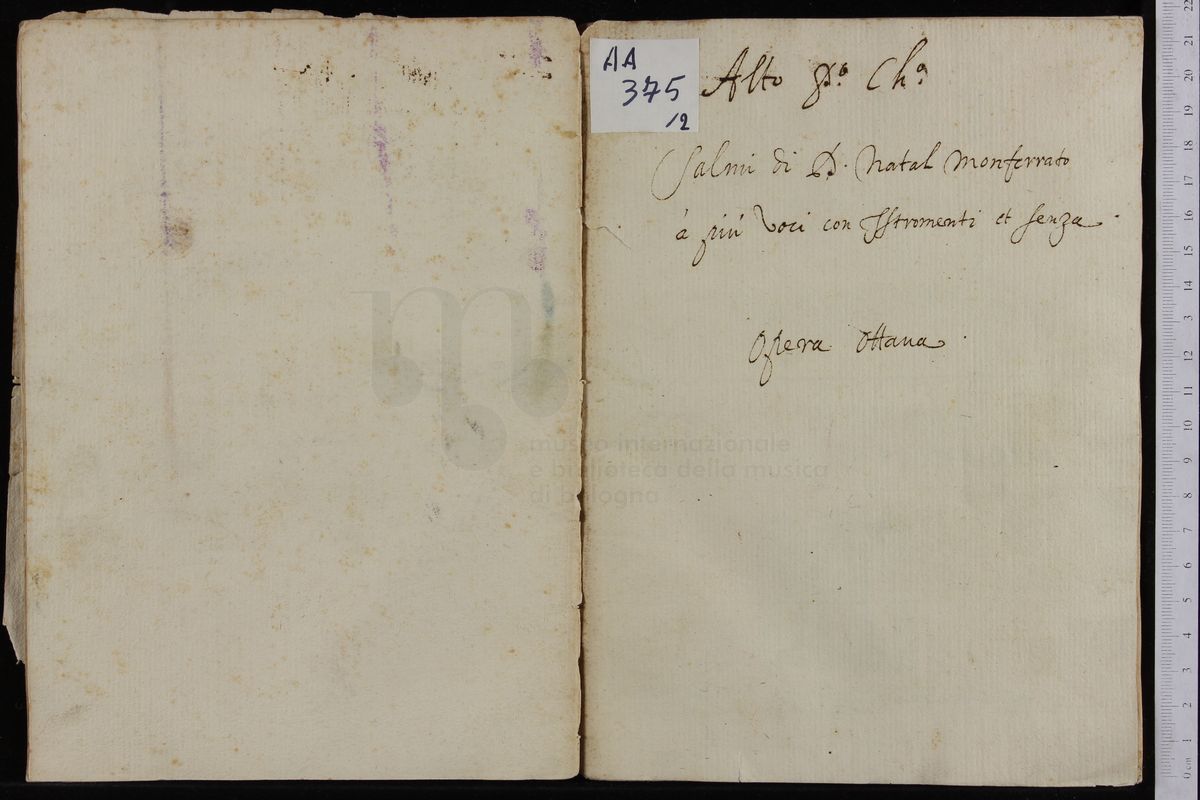 AA
375
/2
Alto P.º Ch.º
Salmi di D. Natal Monferrato
à più Voci con Istromenti et senza.
Opera Ottava.
museo internazionale
e biblioteca della musica
di bologna
0 cm 1 2 3 4 5 6 7 8 9 10 11 12 13 14 15 16 17 18 19 20 21 22